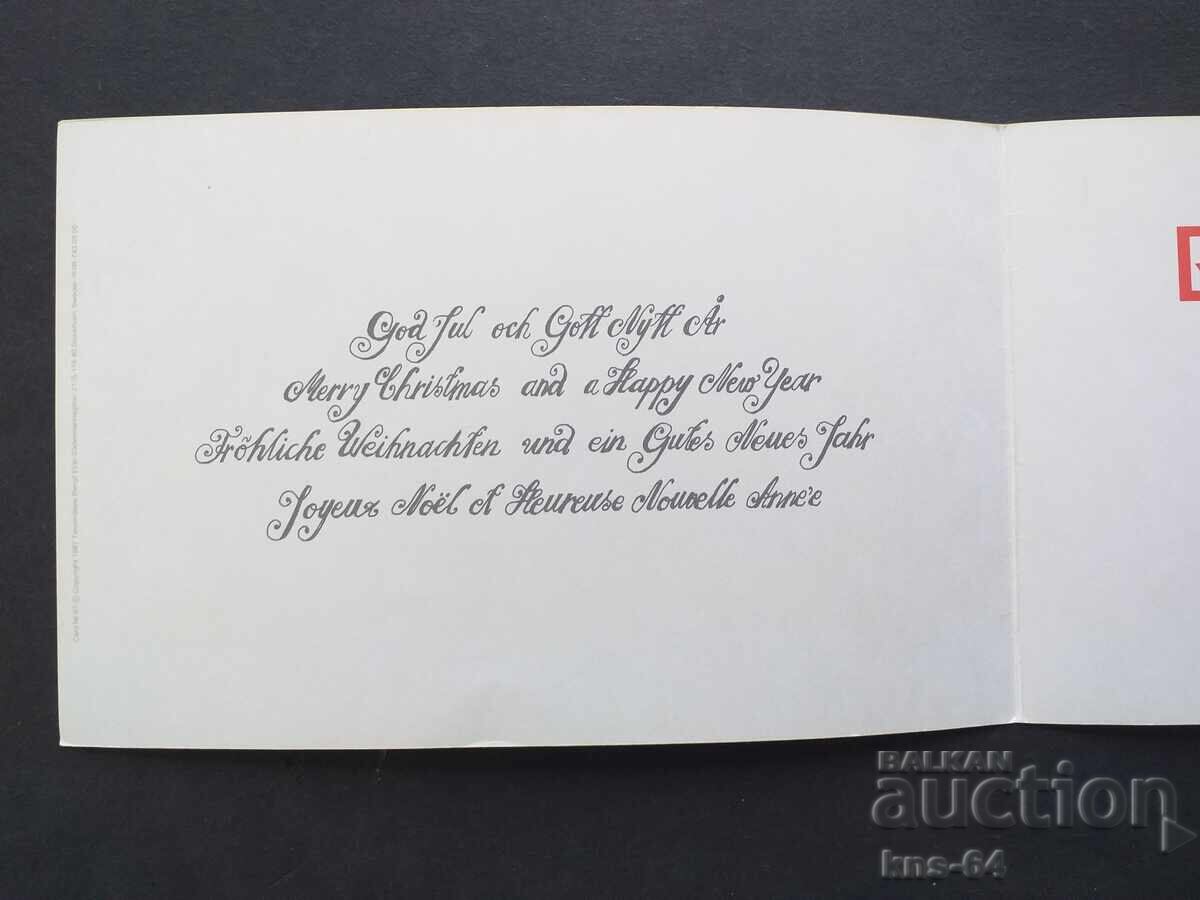 God Jul och Gott Nytt År
Merry Christmas and a Happy New Year
Fröhliche Weihnachten und ein Gutes Neues Jahr
Joyeux Noël et Heureuse Nouvelle Année
BALKAN
auction
kns-64